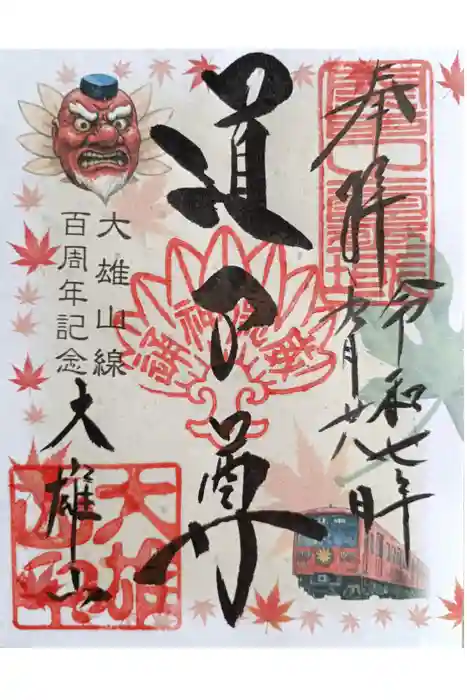 奉拝
令和七年
九月廿八日
道了尊
大雄山線
百周年記念
大雄山